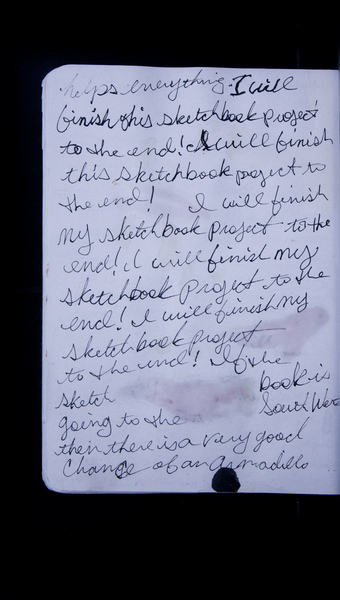 helps everything. I will
finish this sketchbook project
to the end! I will finish
this sketchbook project to
the end! I will finish
my sketchbook project to the
end! I will finish my
sketchbook project to the
end! I will finish my
sketchbook project
to the end! If the
sketch book is
going to the South West
then there is a very good
chance of an armadillo